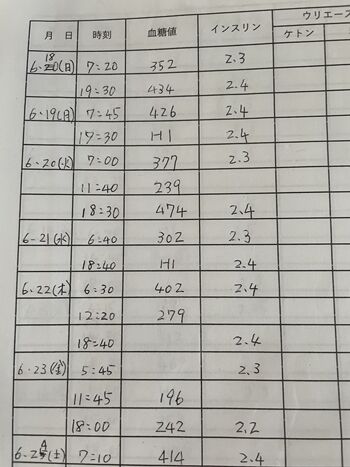 月 日 時刻 血糖値 インスリン ウリエース
ケトン
6・18(日) 7:20 352 2.3
19:30 434 2.4
6・19(月) 7:45 426 2.4
19:30 HI 2.4
6・20(火) 7:00 377 2.3
11:40 239
18:30 474 2.4
6-21(水) 6:40 302 2.3
18:40 HI 2.4
6・22(木) 6:30 402 2.4
12:20 279
18:40 2.4
6・23(金) 5:45 2.3
11:45 196
18:00 242 2.2
6・24(土) 7:10 414 2.4